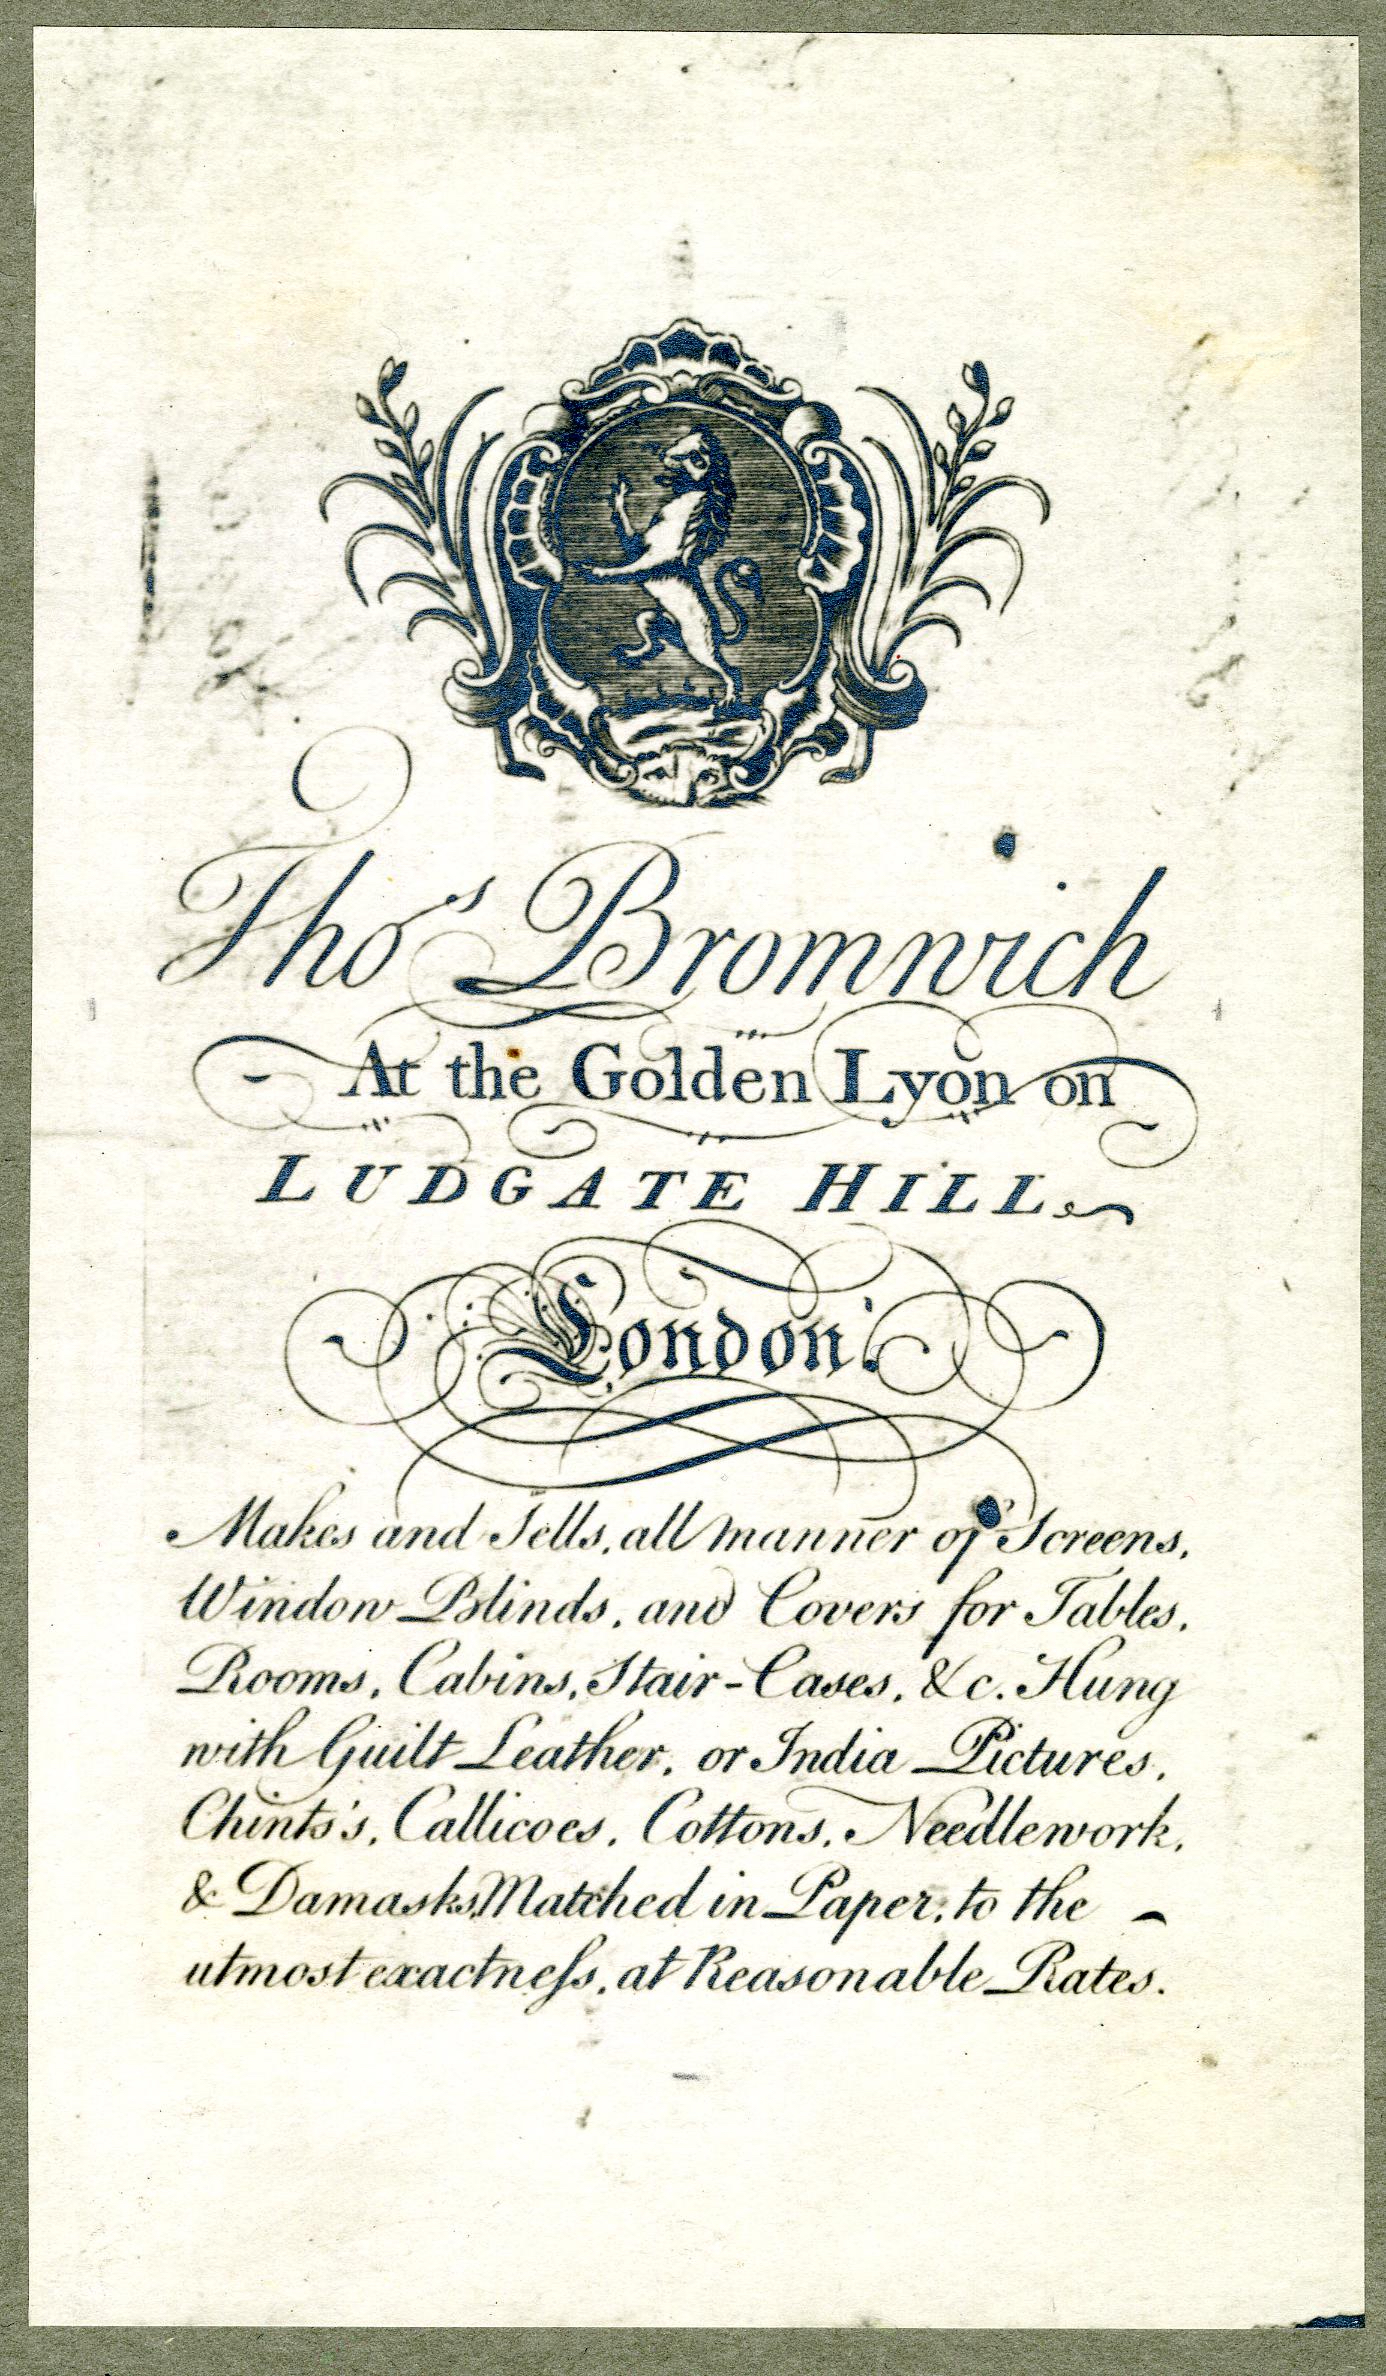 Thos Bromwich
At the Golden Lyon on
LUDGATE HILL
London.
Makes and Sells, all manner of Screens,
Window Blinds, and Covers for Tables,
Rooms, Cabins, Stair-Cases, &c. Hung
with Guilt Leather, or India Pictures,
Chints's, Callicoes, Cottons, Needlework,
& Damasks, Matched in Paper, to the
utmost exactneſs, at Reasonable Rates.